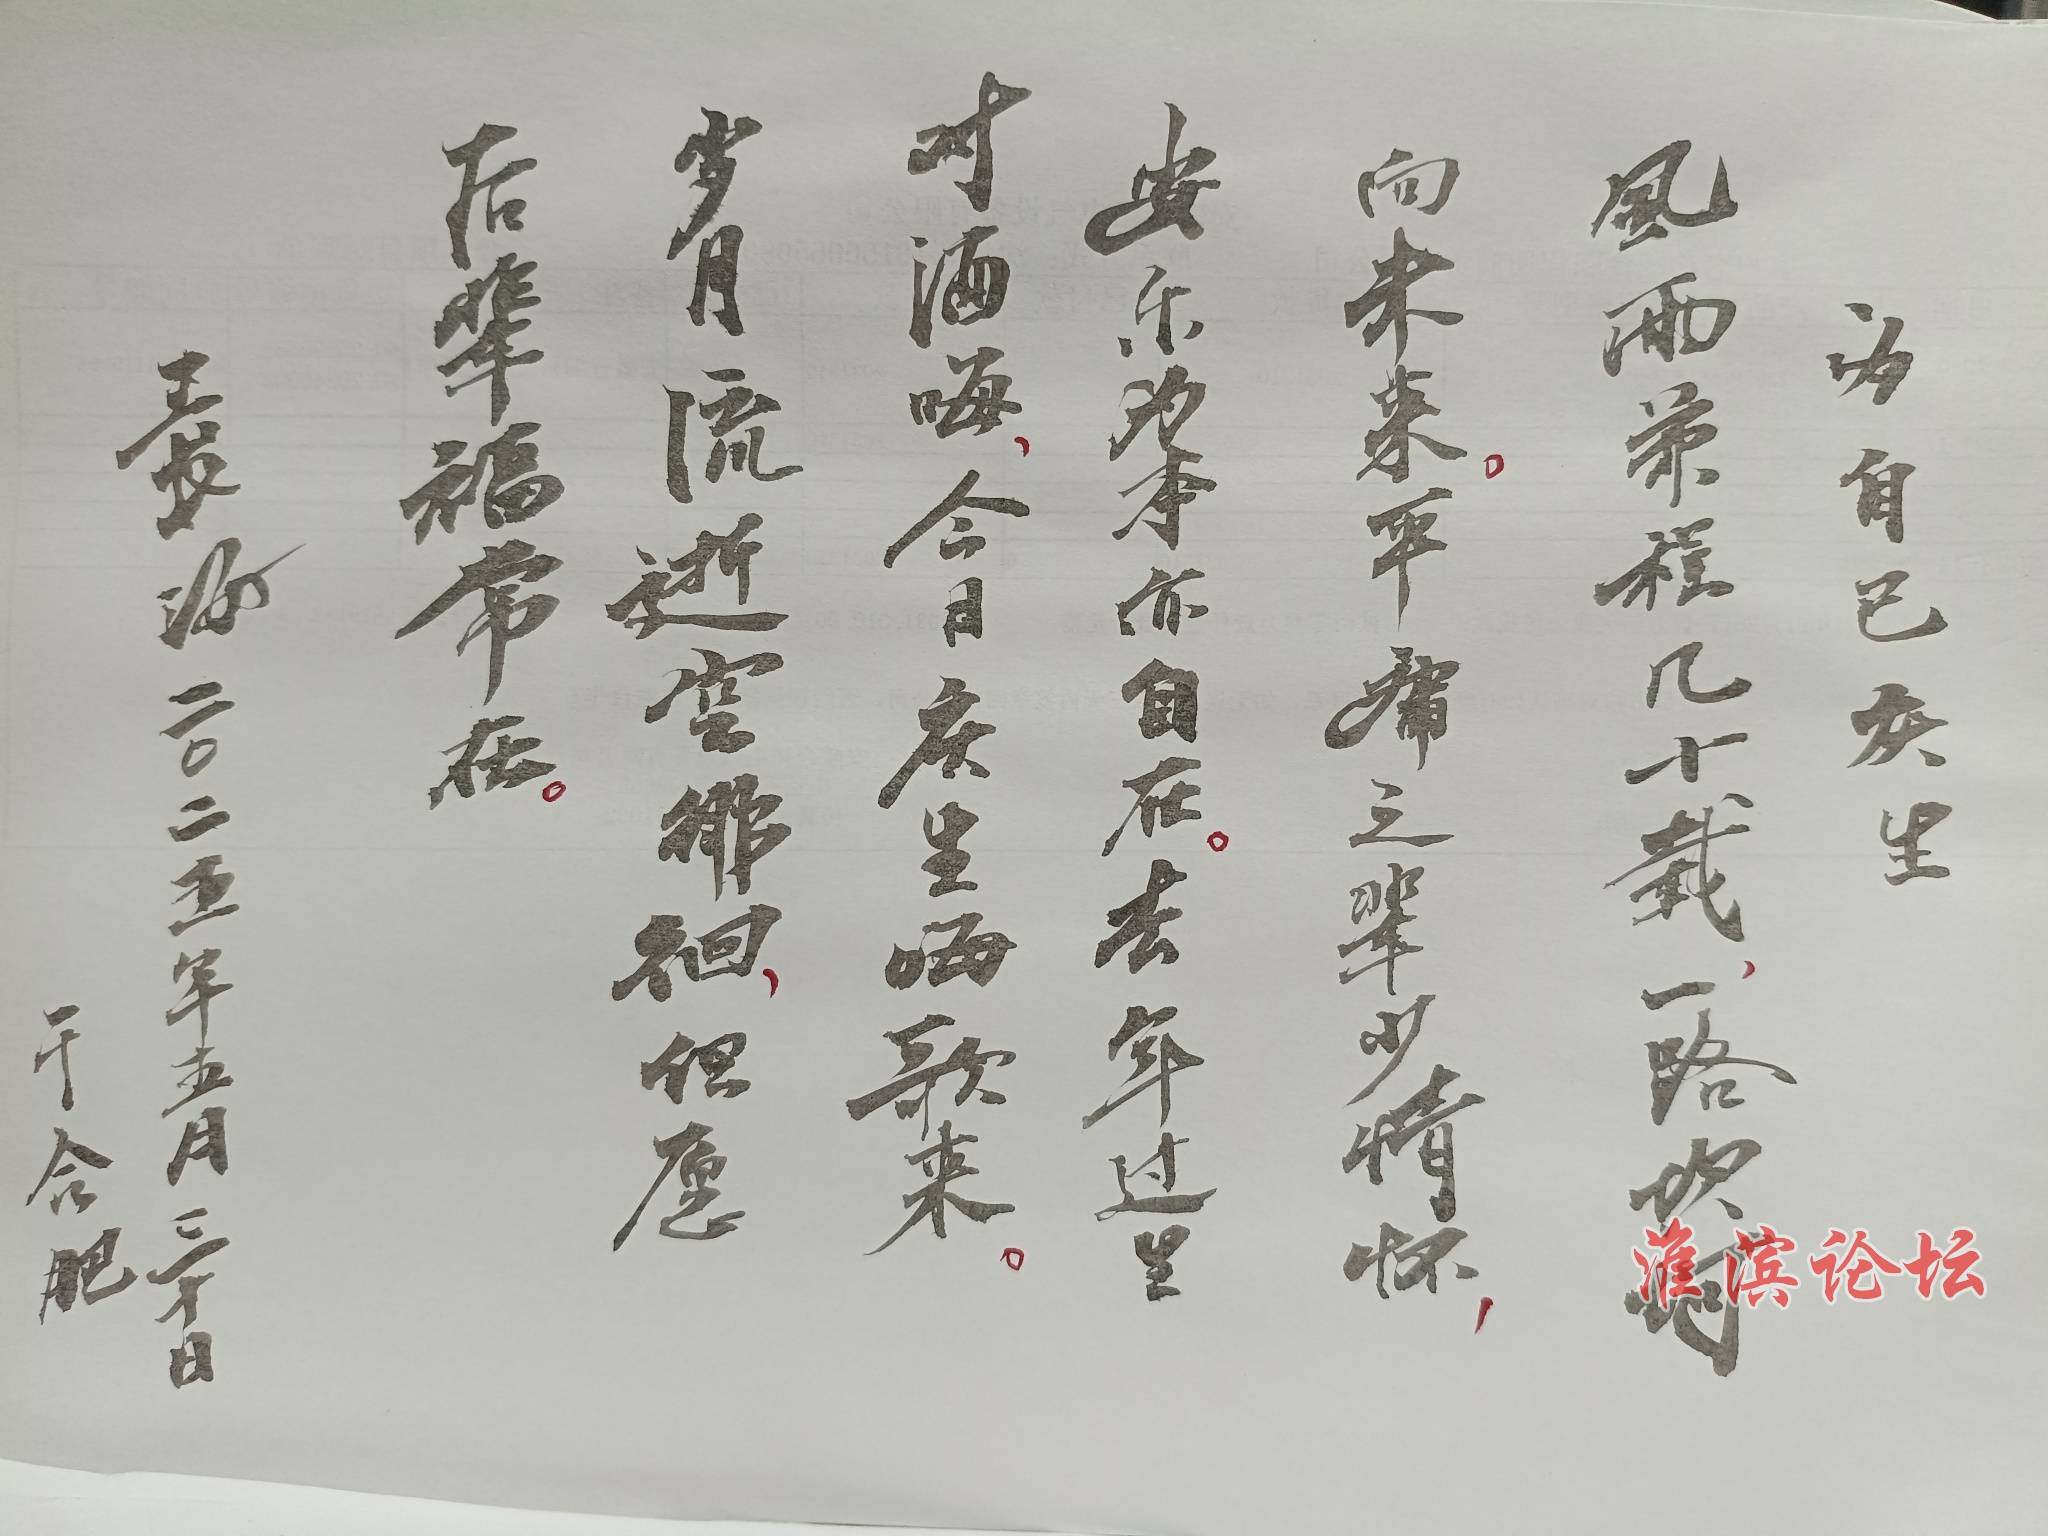 为自己庆生
風雨兼程几十载，一路坎坷
向未来。平庸之辈少情怀，
安乐为本亦自在。去年过生
对酒海，今日庆生嗨歌来。
岁月流逝空徘徊，但愿
后辈福常在。
王长海 二〇二五年五月三十日
于合肥
淮滨论坛